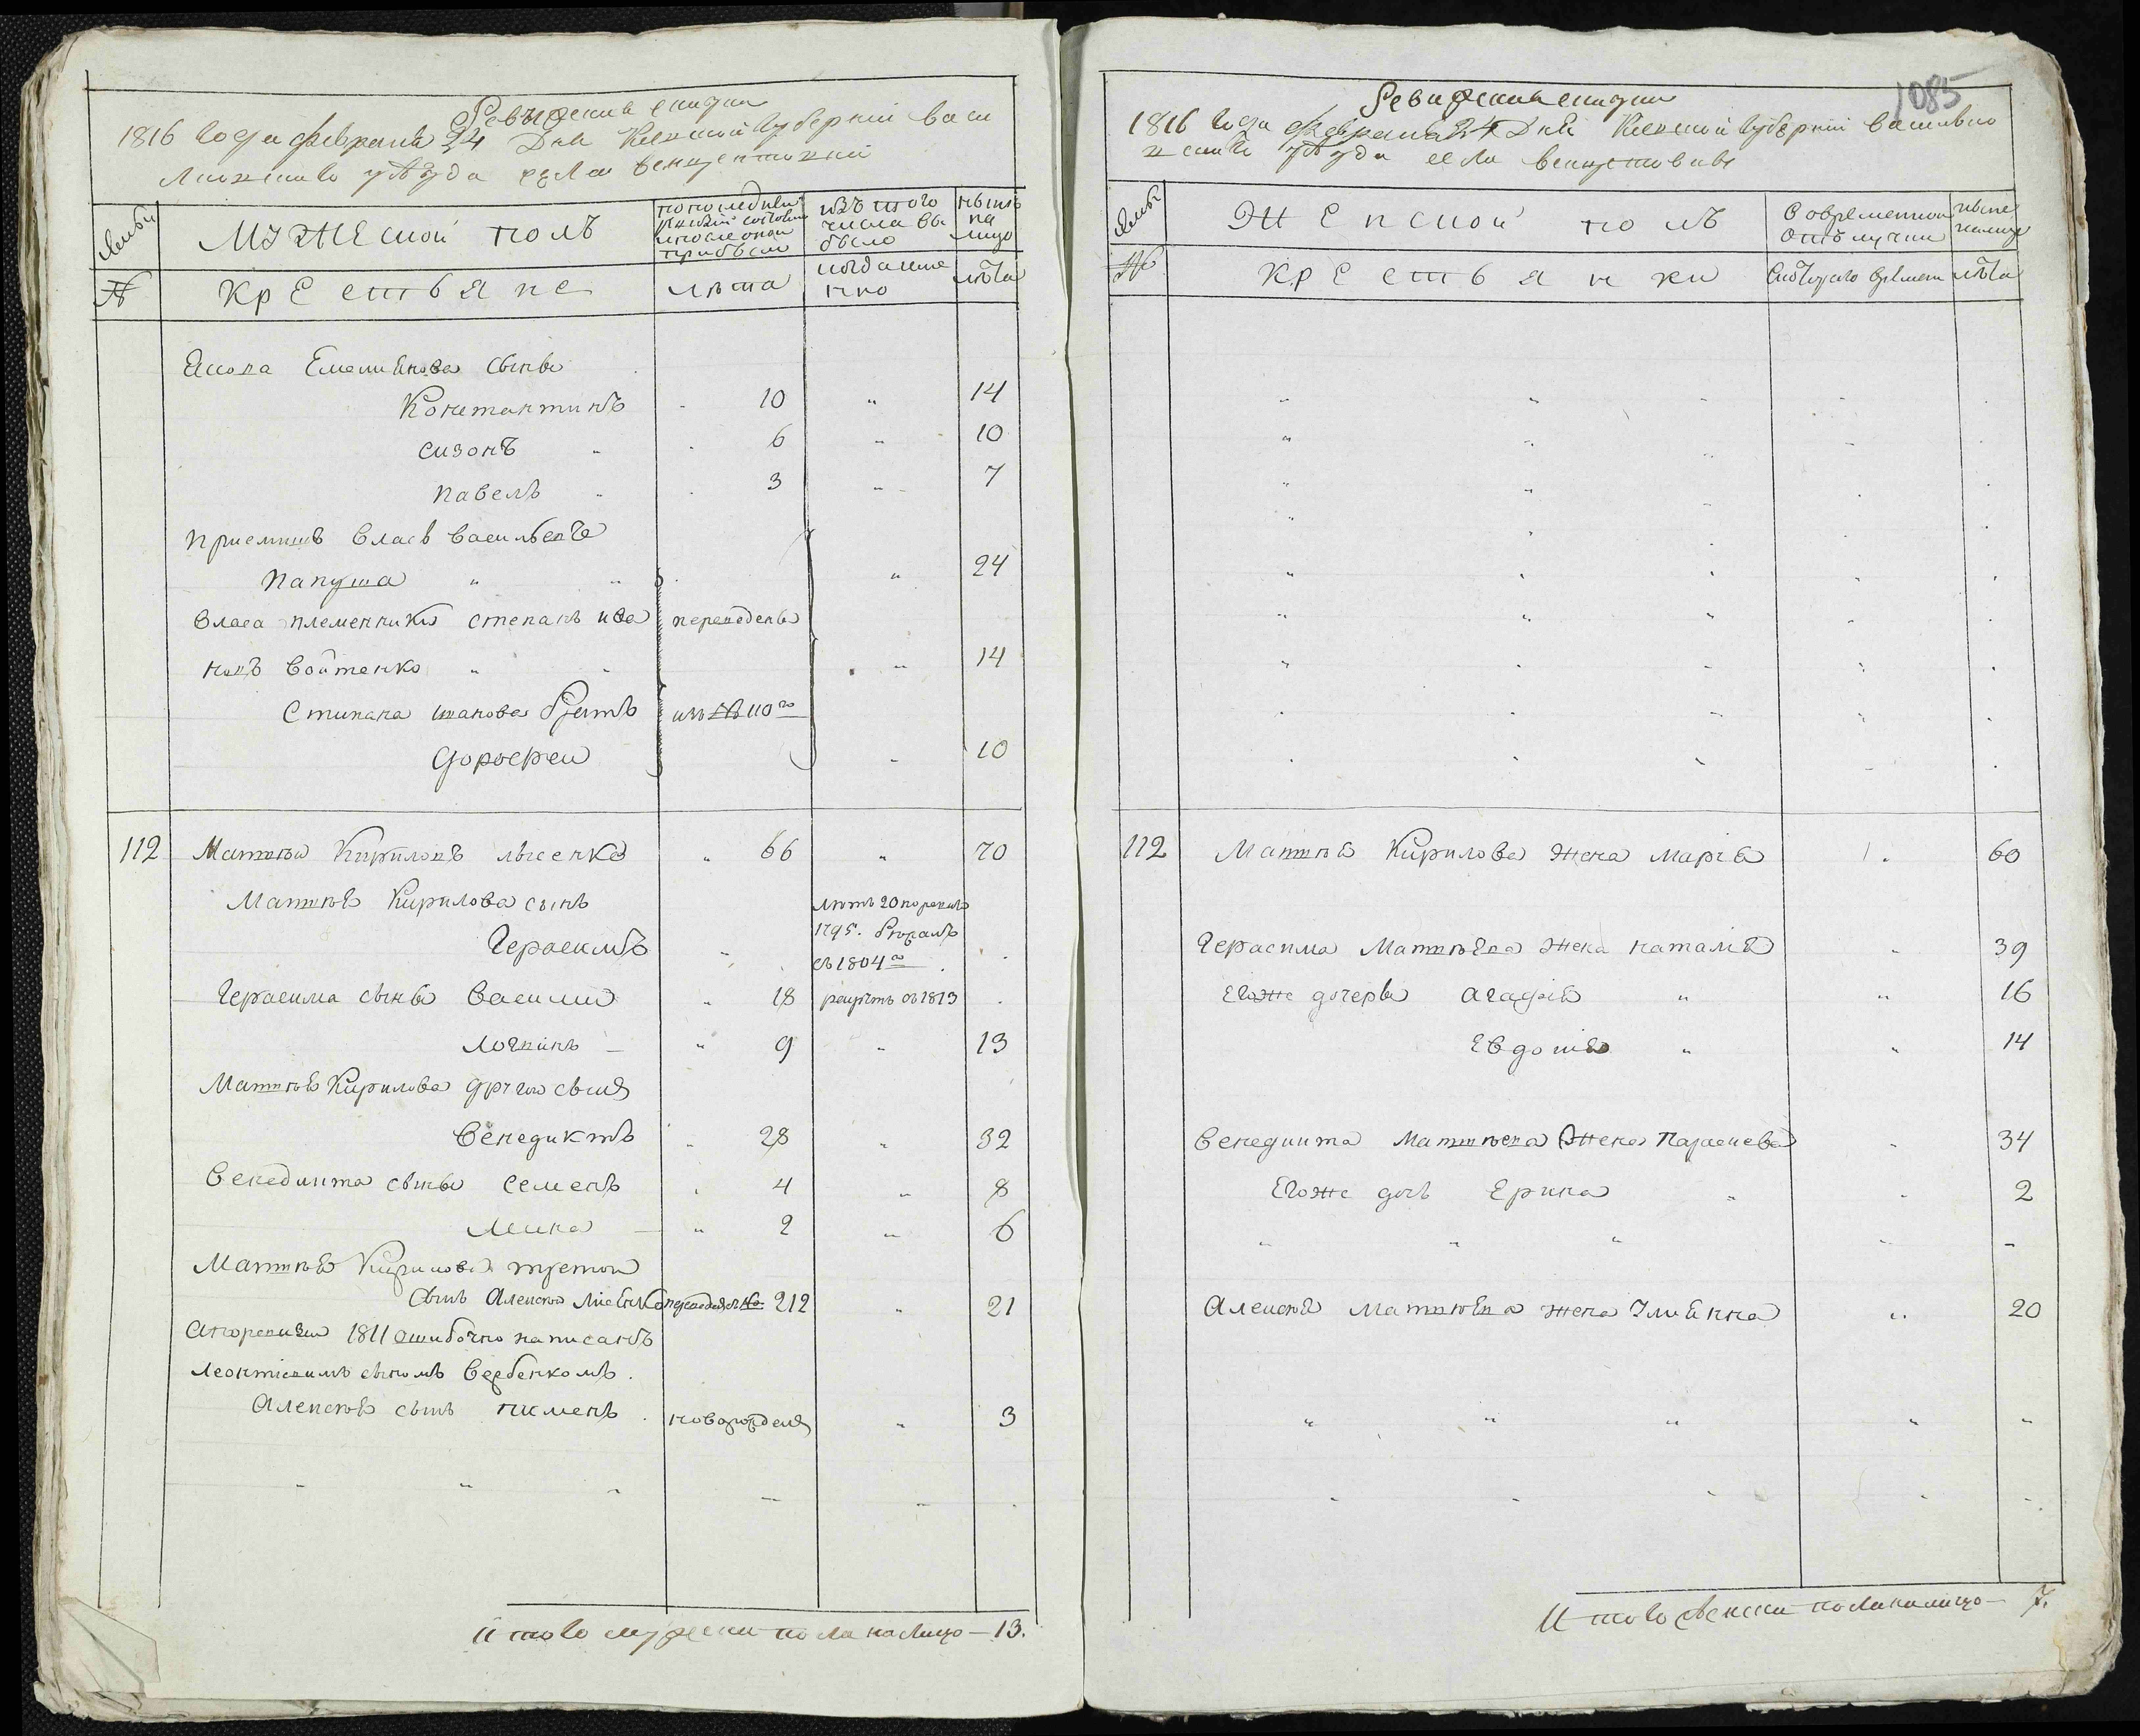 Ревизская сказка
1816 года февраля 24 Дня Киевской губернии Васи
лковскаго уѣзда села
Мужеской полъ
по последней ревизии состояло и после оной прибыло
изъ того числа выбыло
нынѣ на лицо
№
Крестьяне
лѣта
когда именно
лѣта
Якова Емельянова сыны
Константинъ 10 " 14
Сизонъ " 6 " 10
Павелъ " 3 " 7
приемышъ Власъ Васильевъ
Папуша " " " 24
Власа племенники Степанъ Ива переведены
новъ Войтенко " " 14
Степана Иванова братъ изъ № 110го
Дорофей " 10
112 Матвей Кириловъ Лысенко " 66 " 70
Матвея Кирилова сынъ лѣтъ 20 по ревизи
Герасимъ 1795.
съ 1804го
Герасима сыны Василий " 18 рекрутъ въ 1813
Логвинъ " 9 " 13
Матвея Кирилова другой сынъ
Венедиктъ " 28 " 32
Венедикта сыны Семенъ " 4 " 8
Мина " 2 " 6
Матвея Кирилова третой
сынъ Алексей Лисенко переведенъ № 212 " 21
а по ревизии 1811 ошибочно написанъ
Леонтиевимъ сыномъ Вербенкомъ.
Алексея сынъ Пименъ новорожденъ " 3
Итого мужеска пола на лицо — 13.
1085
Ревизская сказка
1816 года февраля 24 Дня Киевской губернии Василко
вскаго уѣзда села
Женской полъ
Во временной отлучке
ныне налицо
№
Крестьянки
Съ котораго времени
лѣта
112 Матвея Кирилова жена Мария " 60
Герасима Матвеева жена Наталия " 39
Егоже дочери Агафия " " 16
Евдокия " " 14
Венедикта Матвеева жена Параскева " 34
Егоже дочь Ерина " " 2
Алексея Матвеева жена Улияна " 20
Итого женска пола налицо — 7.